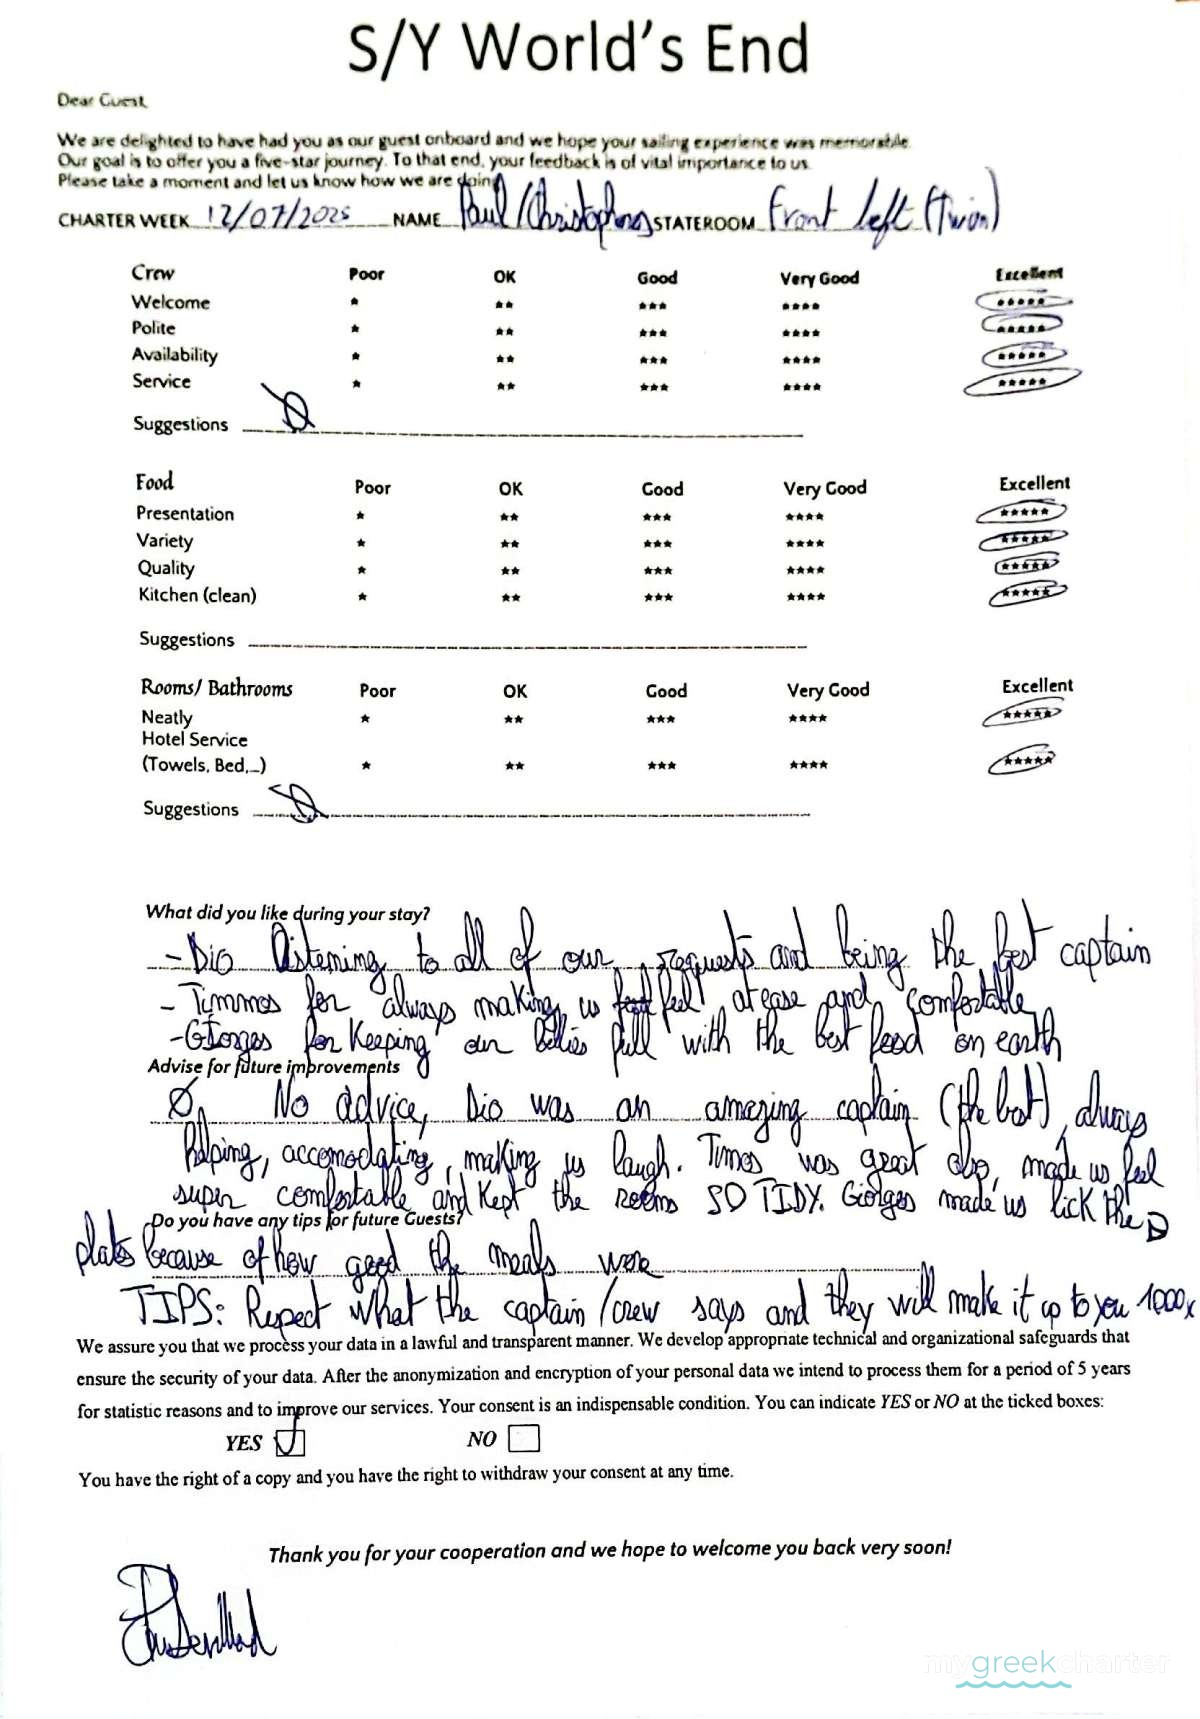 S/Y World's End
Dear Guest,
We are delighted to have had you as our guest onboard and we hope your sailing experience was memorable.
Our goal is to offer you a five-star journey. To that end, your feedback is of vital importance to us.
Please take a moment and let us know how we are doing
CHARTER WEEK 12/07/2025 NAME Paul/Christophoros STATEROOM Front left (Twin)
Crew Poor OK Good Very Good Excellent
Welcome * ** *** **** *****
Polite * ** *** **** *****
Availability * ** *** **** *****
Service * ** *** **** *****
Suggestions Ø
Food Poor OK Good Very Good Excellent
Presentation * ** *** **** *****
Variety * ** *** **** *****
Quality * ** *** **** *****
Kitchen (clean) * ** *** **** *****
Suggestions
Rooms/ Bathrooms Poor OK Good Very Good Excellent
Neatly * ** *** **** *****
Hotel Service
(Towels, Bed,...) * ** *** **** *****
Suggestions Ø
What did you like during your stay?
- Dio listening to all of our requests and being the best captain
- Timmos for always making us feel at ease and comfortable
- Giorges for keeping our bellies full with the best food on earth
Advise for future improvements
Ø, No advice, Dio was an amazing captain (the best), always
helping, accomodating, making us laugh. Timos was great also, made us feel
super comfortable and kept the rooms SO TIDY. Giorges made us lick the
Do you have any tips for future Guests?
plates because of how good the meals were
TIPS: Respect what the captain/crew says and they will make it up to you 1000x
We assure you that we process your data in a lawful and transparent manner. We develop appropriate technical and organizational safeguards that
ensure the security of your data. After the anonymization and encryption of your personal data we intend to process them for a period of 5 years
for statistic reasons and to improve our services. Your consent is an indispensable condition. You can indicate YES or NO at the ticked boxes:
YES NO
You have the right of a copy and you have the right to withdraw your consent at any time.
Thank you for your cooperation and we hope to welcome you back very soon!
mygreekcharter